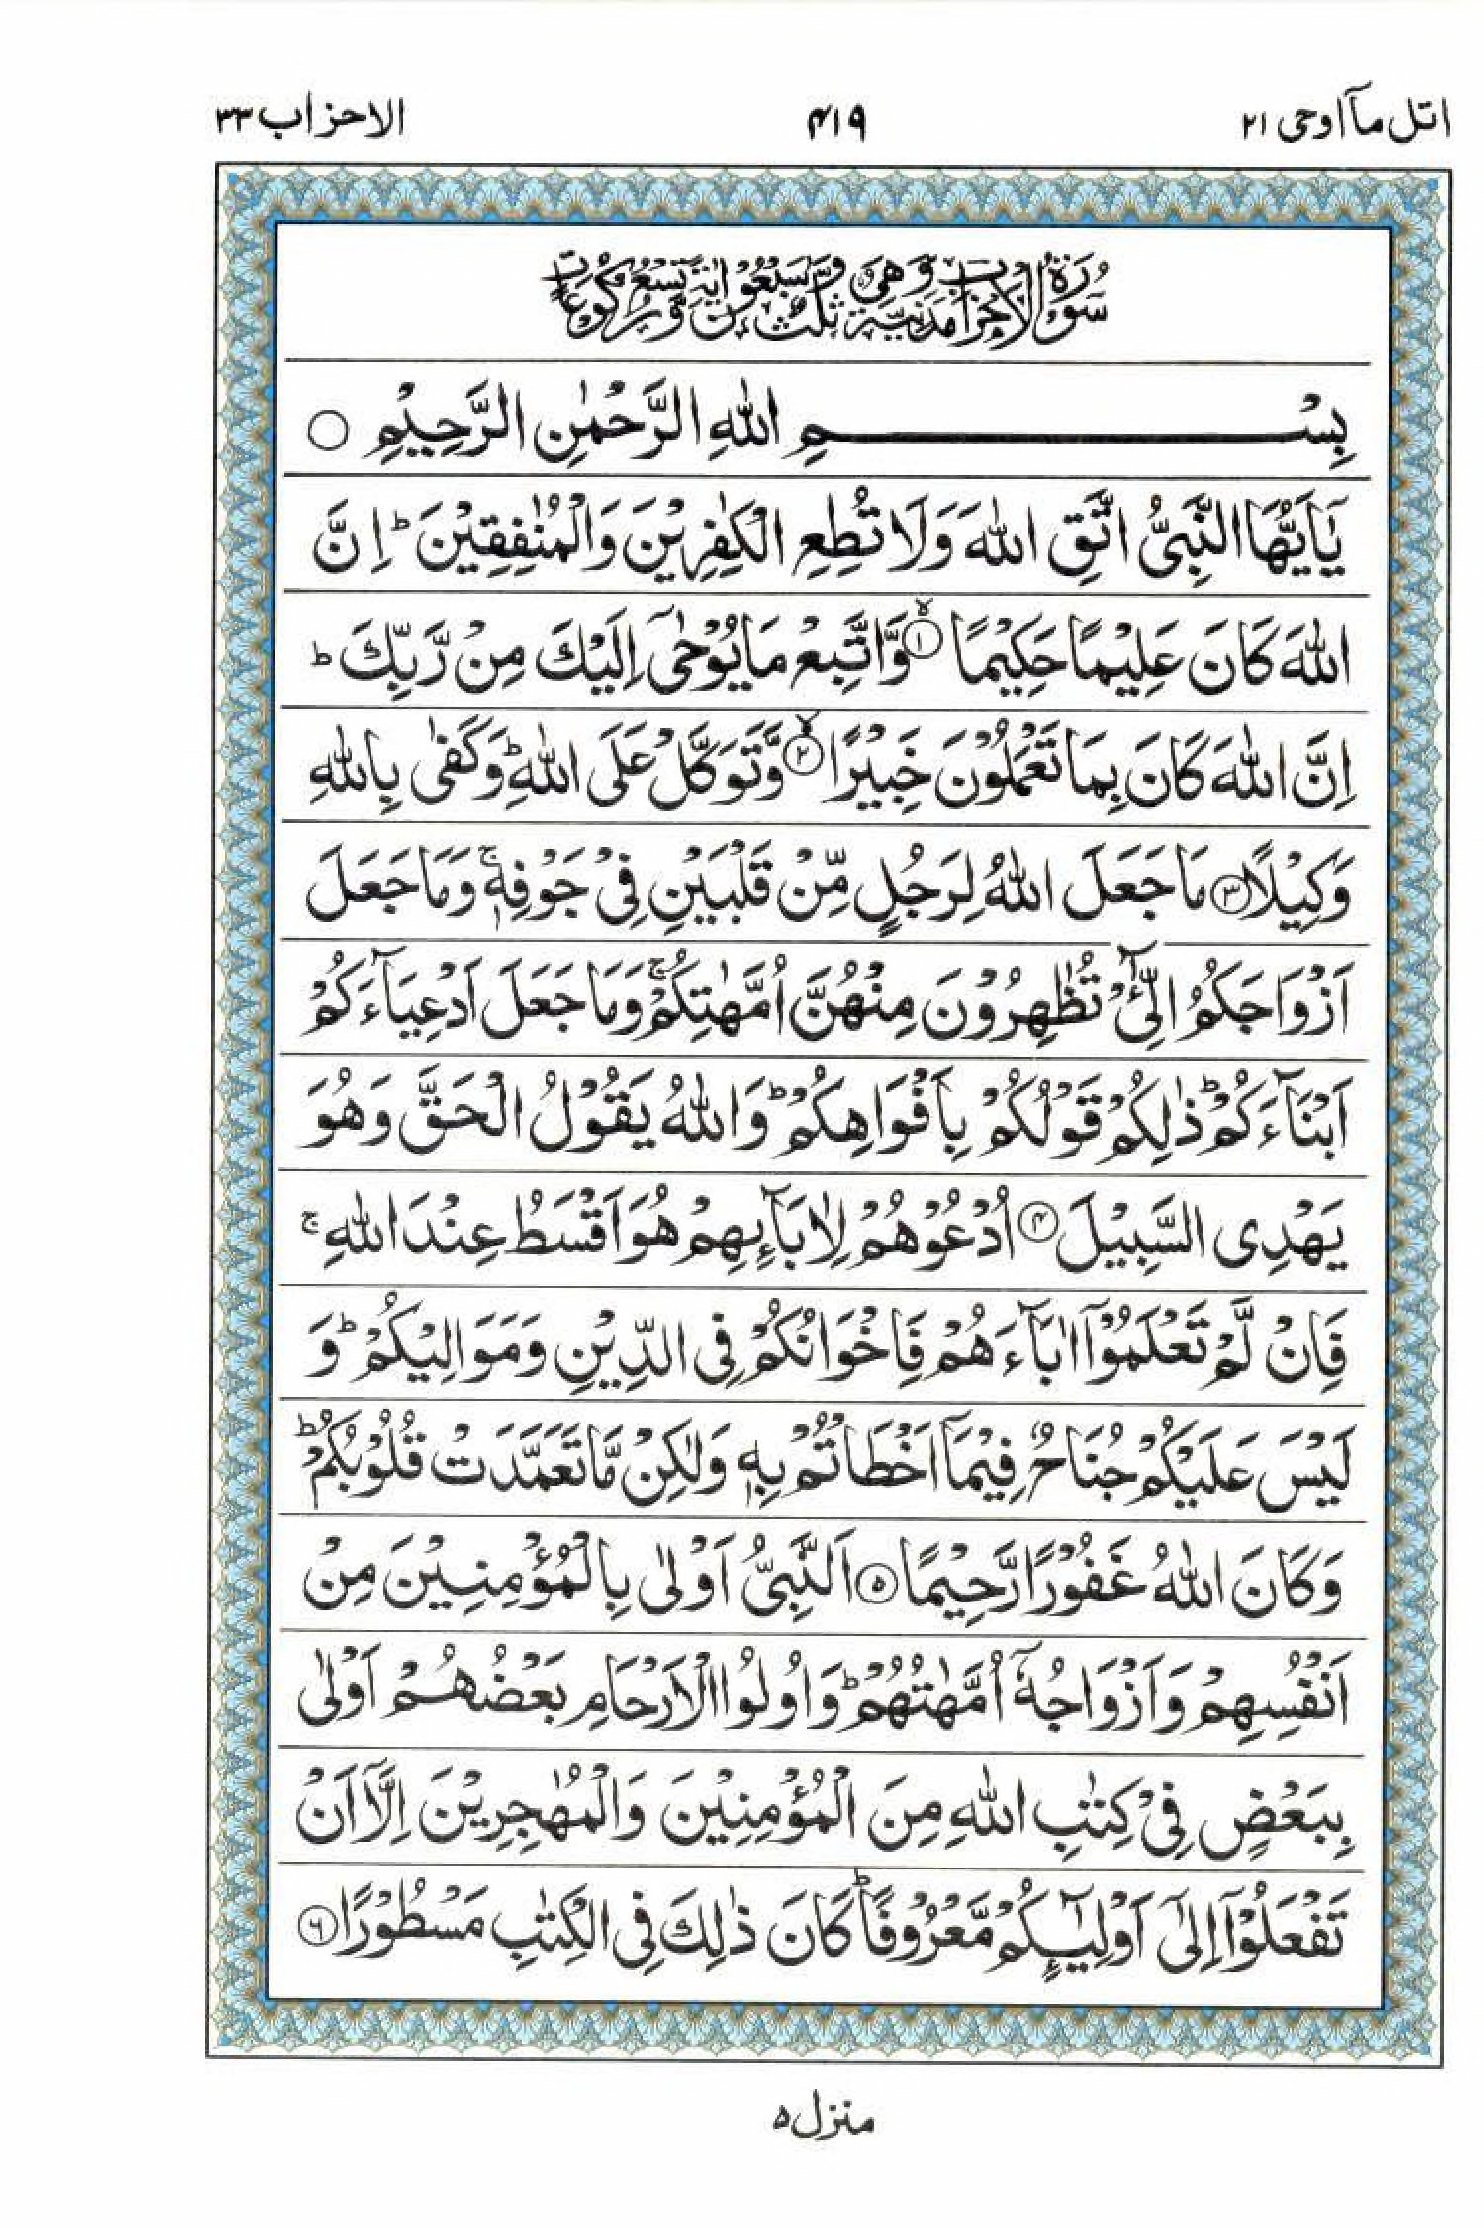 اتل مآ اوحی ٢١
٤١٩
الاحزاب ٣٣
سُوْرَةُ الْاَحْزَابِ مَدَنِيَّةٌ وَّهِيَ ثَلٰثٌ وَّسَبْعُوْنَ اٰيَةً وَّتِسْعُ رُكُوْعَاتٍ
بِسْمِ اللّٰهِ الرَّحْمٰنِ الرَّحِيْمِ ○
يٰۤاَيُّهَا النَّبِيُّ اتَّقِ اللّٰهَ وَلَا تُطِعِ الْكٰفِرِيْنَ وَالْمُنٰفِقِيْنَ ؕ اِنَّ
اللّٰهَ كَانَ عَلِيْمًا حَكِيْمًا ۙ﴿١﴾ وَّاتَّبِعْ مَا يُوْحٰۤى اِلَيْكَ مِنْ رَّبِّكَ ؕ
اِنَّ اللّٰهَ كَانَ بِمَا تَعْمَلُوْنَ خَبِيْرًا ۙ﴿٢﴾ وَّتَوَكَّلْ عَلَى اللّٰهِ ؕ وَكَفٰى بِاللّٰهِ
وَكِيْلًا ﴿٣﴾ مَا جَعَلَ اللّٰهُ لِرَجُلٍ مِّنْ قَلْبَيْنِ فِيْ جَوْفِهٖ ۚ وَمَا جَعَلَ
اَزْوَاجَكُمُ الّٰٓـِٔيْ تُظٰهِرُوْنَ مِنْهُنَّ اُمَّهٰتِكُمْ ۚ وَمَا جَعَلَ اَدْعِيَآءَكُمْ
اَبْنَآءَكُمْ ؕ ذٰلِكُمْ قَوْلُكُمْ بِاَفْوَاهِكُمْ ؕ وَاللّٰهُ يَقُوْلُ الْحَقَّ وَهُوَ
يَهْدِى السَّبِيْلَ ﴿٤﴾ اُدْعُوْهُمْ لِاٰبَآئِهِمْ هُوَ اَقْسَطُ عِنْدَ اللّٰهِ ۚ
فَاِنْ لَّمْ تَعْلَمُوْۤا اٰبَآءَهُمْ فَاِخْوَانُكُمْ فِى الدِّيْنِ وَمَوَالِيْكُمْ ؕ وَ
لَيْسَ عَلَيْكُمْ جُنَاحٌ فِيْمَاۤ اَخْطَاْتُمْ بِهٖ وَلٰكِنْ مَّا تَعَمَّدَتْ قُلُوْبُكُمْ ؕ
وَكَانَ اللّٰهُ غَفُوْرًا رَّحِيْمًا ﴿٥﴾ اَلنَّبِيُّ اَوْلٰى بِالْمُؤْمِنِيْنَ مِنْ
اَنْفُسِهِمْ وَاَزْوَاجُهٗۤ اُمَّهٰتُهُمْ ؕ وَاُولُوا الْاَرْحَامِ بَعْضُهُمْ اَوْلٰى
بِبَعْضٍ فِيْ كِتٰبِ اللّٰهِ مِنَ الْمُؤْمِنِيْنَ وَالْمُهٰجِرِيْنَ اِلَّاۤ اَنْ
تَفْعَلُوْۤا اِلٰۤى اَوْلِيٰٓئِكُمْ مَّعْرُوْفًا ؕ كَانَ ذٰلِكَ فِى الْكِتٰبِ مَسْطُوْرًا ﴿٦﴾
منزل ٥